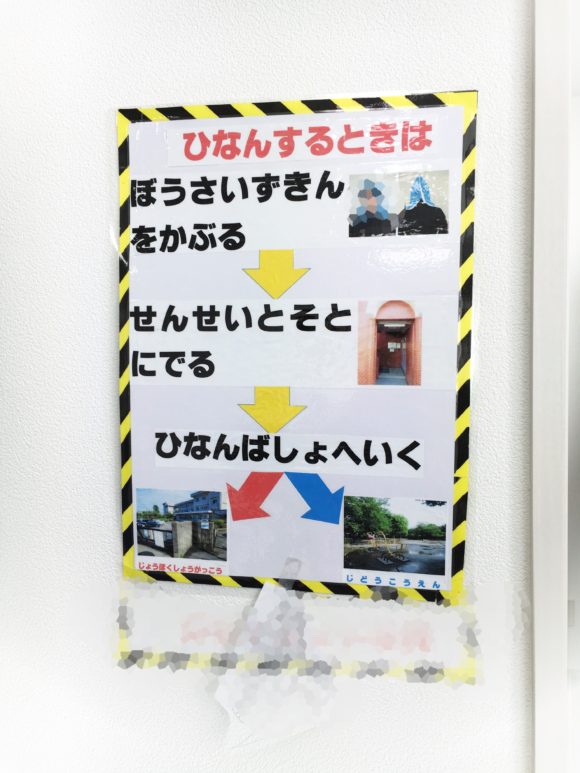 ひなんするときは
ぼうさいずきん
をかぶる
せんせいとそと
にでる
ひなんばしょへいく
じょうほくしょうがっこう
じどうこうえん